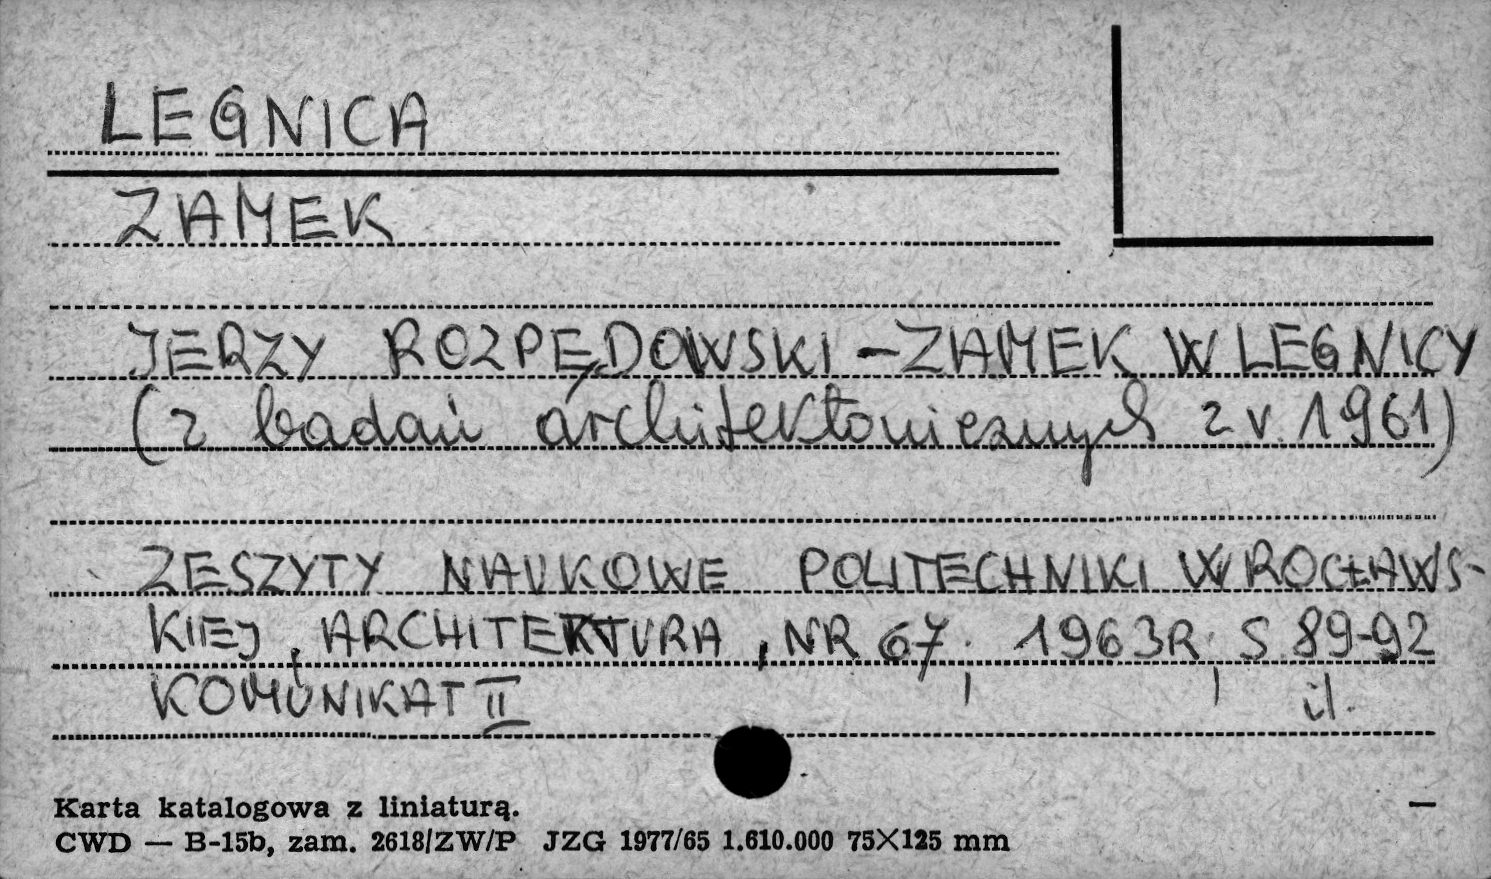 LEGNICA
ZAMEK
JERZY ROZPĘDOWSKI - ZAMEK W LEGNICY
(z badań architektonicznych z r. 1961)
ZESZYTY NAUKOWE POLITECHNIKI WROCŁAWS-
KIEJ, ARCHITEKTURA, NR 67, 1963R, S 89-92
KOMUNIKAT II il.
Karta katalogowa z liniaturą.
CWD — B-15b, zam. 2618/ZW/P JZG 1977/65 1.610.000 75×125 mm